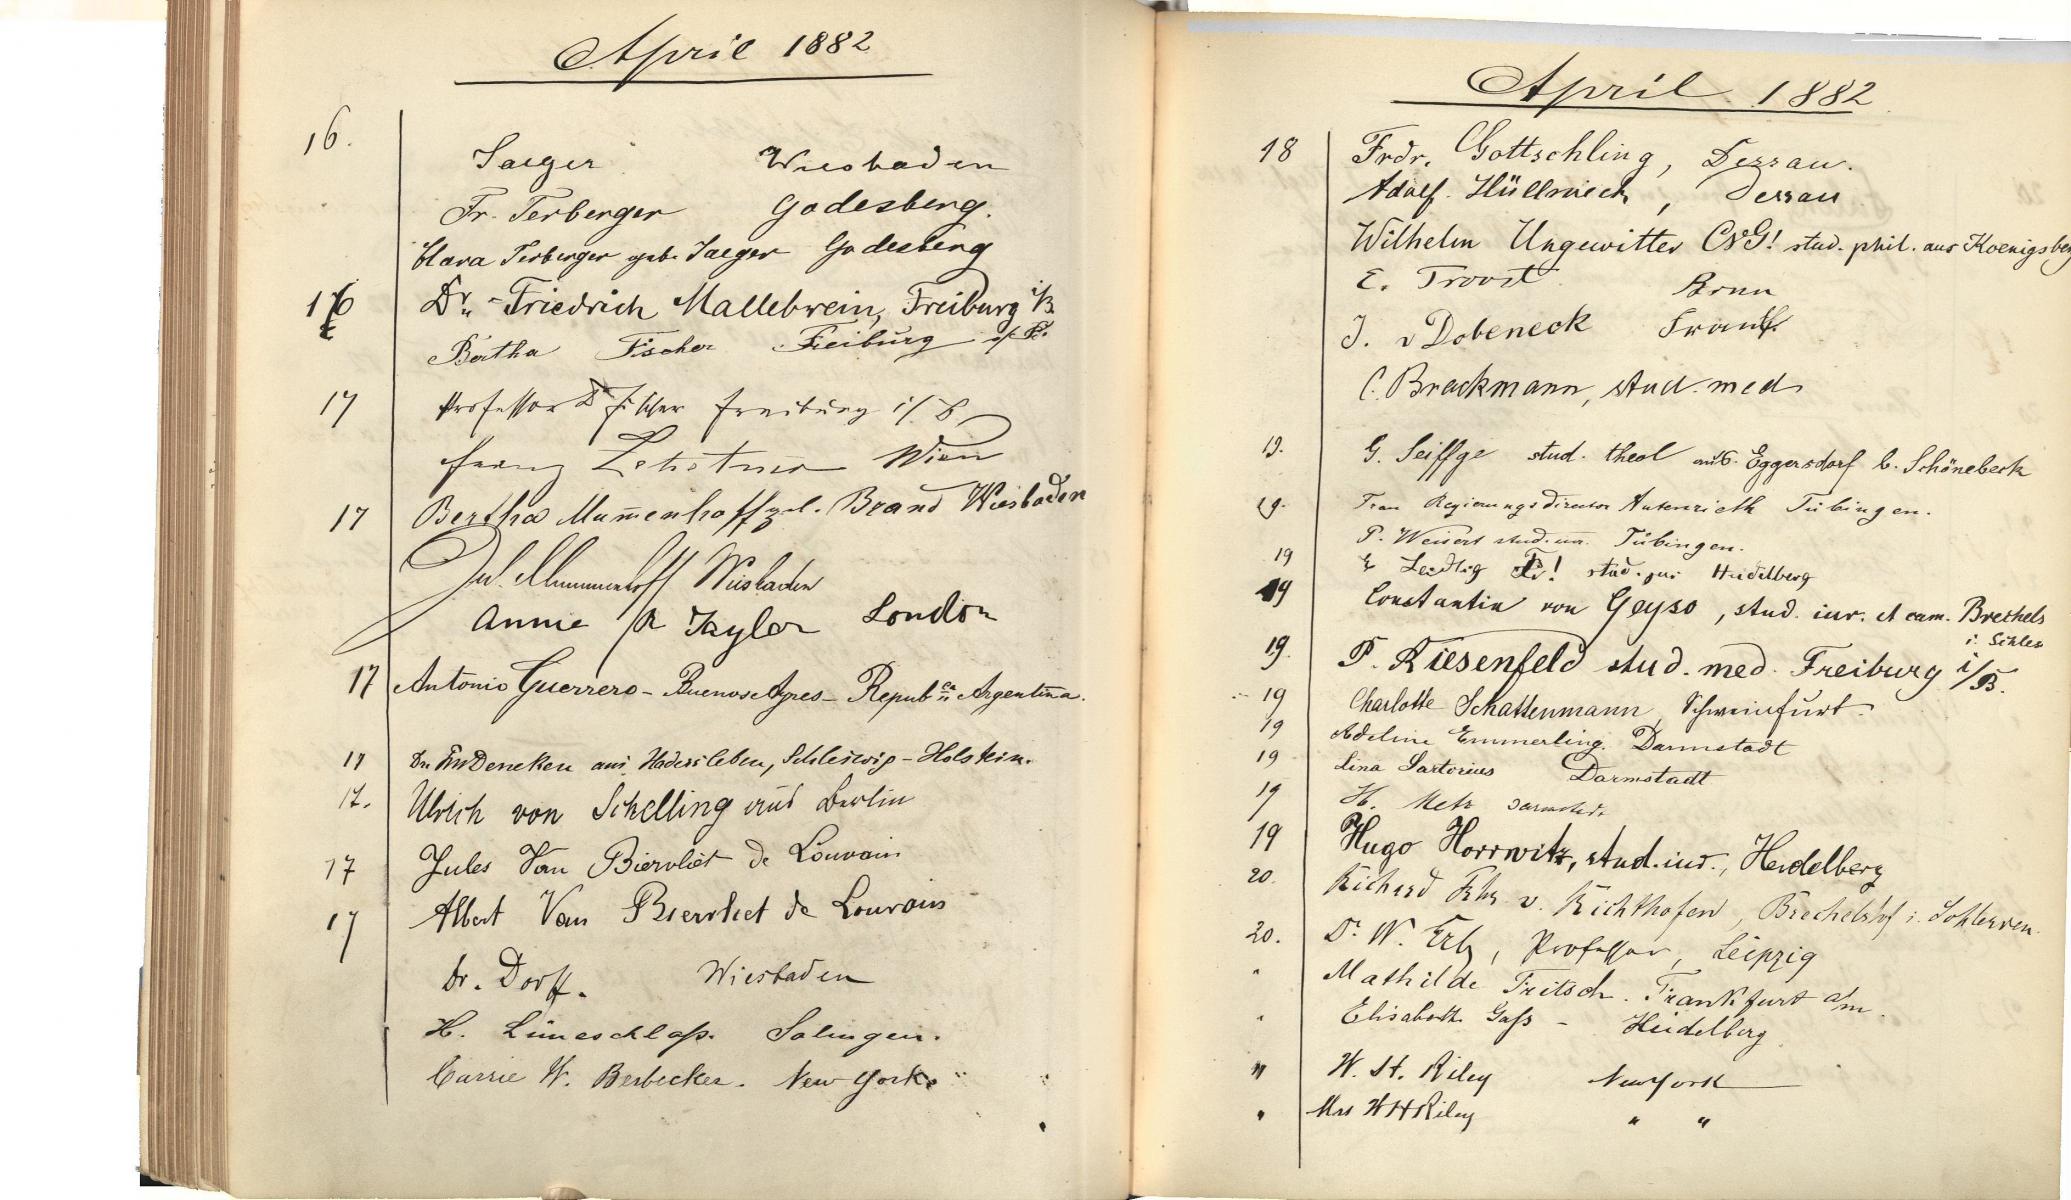 April 1882
16.
Jaeger Wiesbaden
Fr. Terberger Godesberg.
Clara Terberger geb. Jaeger Godesberg
Dr. Friedrich Mallebrein, Freiburg i/B.
Bertha Fischer Freiburg i/B.
17 Professor Dr Fischer Freiburg i/B
Franz Wien
17 Bertha Mum̄enhoff gel. Brand Wiesbaden
Jul. Mummenhoff Wiesbaden
Annie R Taylor London
17 Antonio Guerrero - Buenos Ayres - Repub ca Argentina.
17 Dr. Deneken aus Hadersleben, Schleswig-Holstein.
17. Ulrich von Schelling aus Berlin
17 Jules Van Biervliet de Louvain
17 Albert Van Biervliet de Louvain
Dr. Dorff. Wiesbaden
H. Lüneschloß. Solingen.
Carrie W. Berbecker. New York.
April 1882
18 Frdr. Gottschling, Dessau.
Adolf Dessau
Wilhelm Ungewitter stud. phil. aus Koenigsberg
E. Troost
J. v Dobeneck
C. Brackmann, stud. med.
19. G. Seiffge stud. theol aus Eggersdorf b. Schönebeck
19. Frau Regierungsdirector Autenrieth Tübingen.
P. Weisert stud. Tübingen.
19 stud. jur Heidelberg
19 Constantin von Geyso, stud. iur. et cam. Brechels
i. Schles
19. P. Riesenfeld stud. med. Freiburg i/B.
19 Charlotte Schattenmann, Schweinfurt.
19 Adeline Emmerling. Darmstadt
19 Lina Sartorius Darmstadt
19 H. Metz Darmstadt
19 Hugo Horrwitz, stud. iur., Heidelberg
20. Richard Frhr v. Richthofen, Brechelshof i. Schlesien.
20. Dr W. Erb, Professor, Leipzig
" Mathilde Fritsch. Frankfurt a/m.
" Elisabeth Gaß - Heidelberg
" W. H. Riley New York
" Mrs W H Riley " "